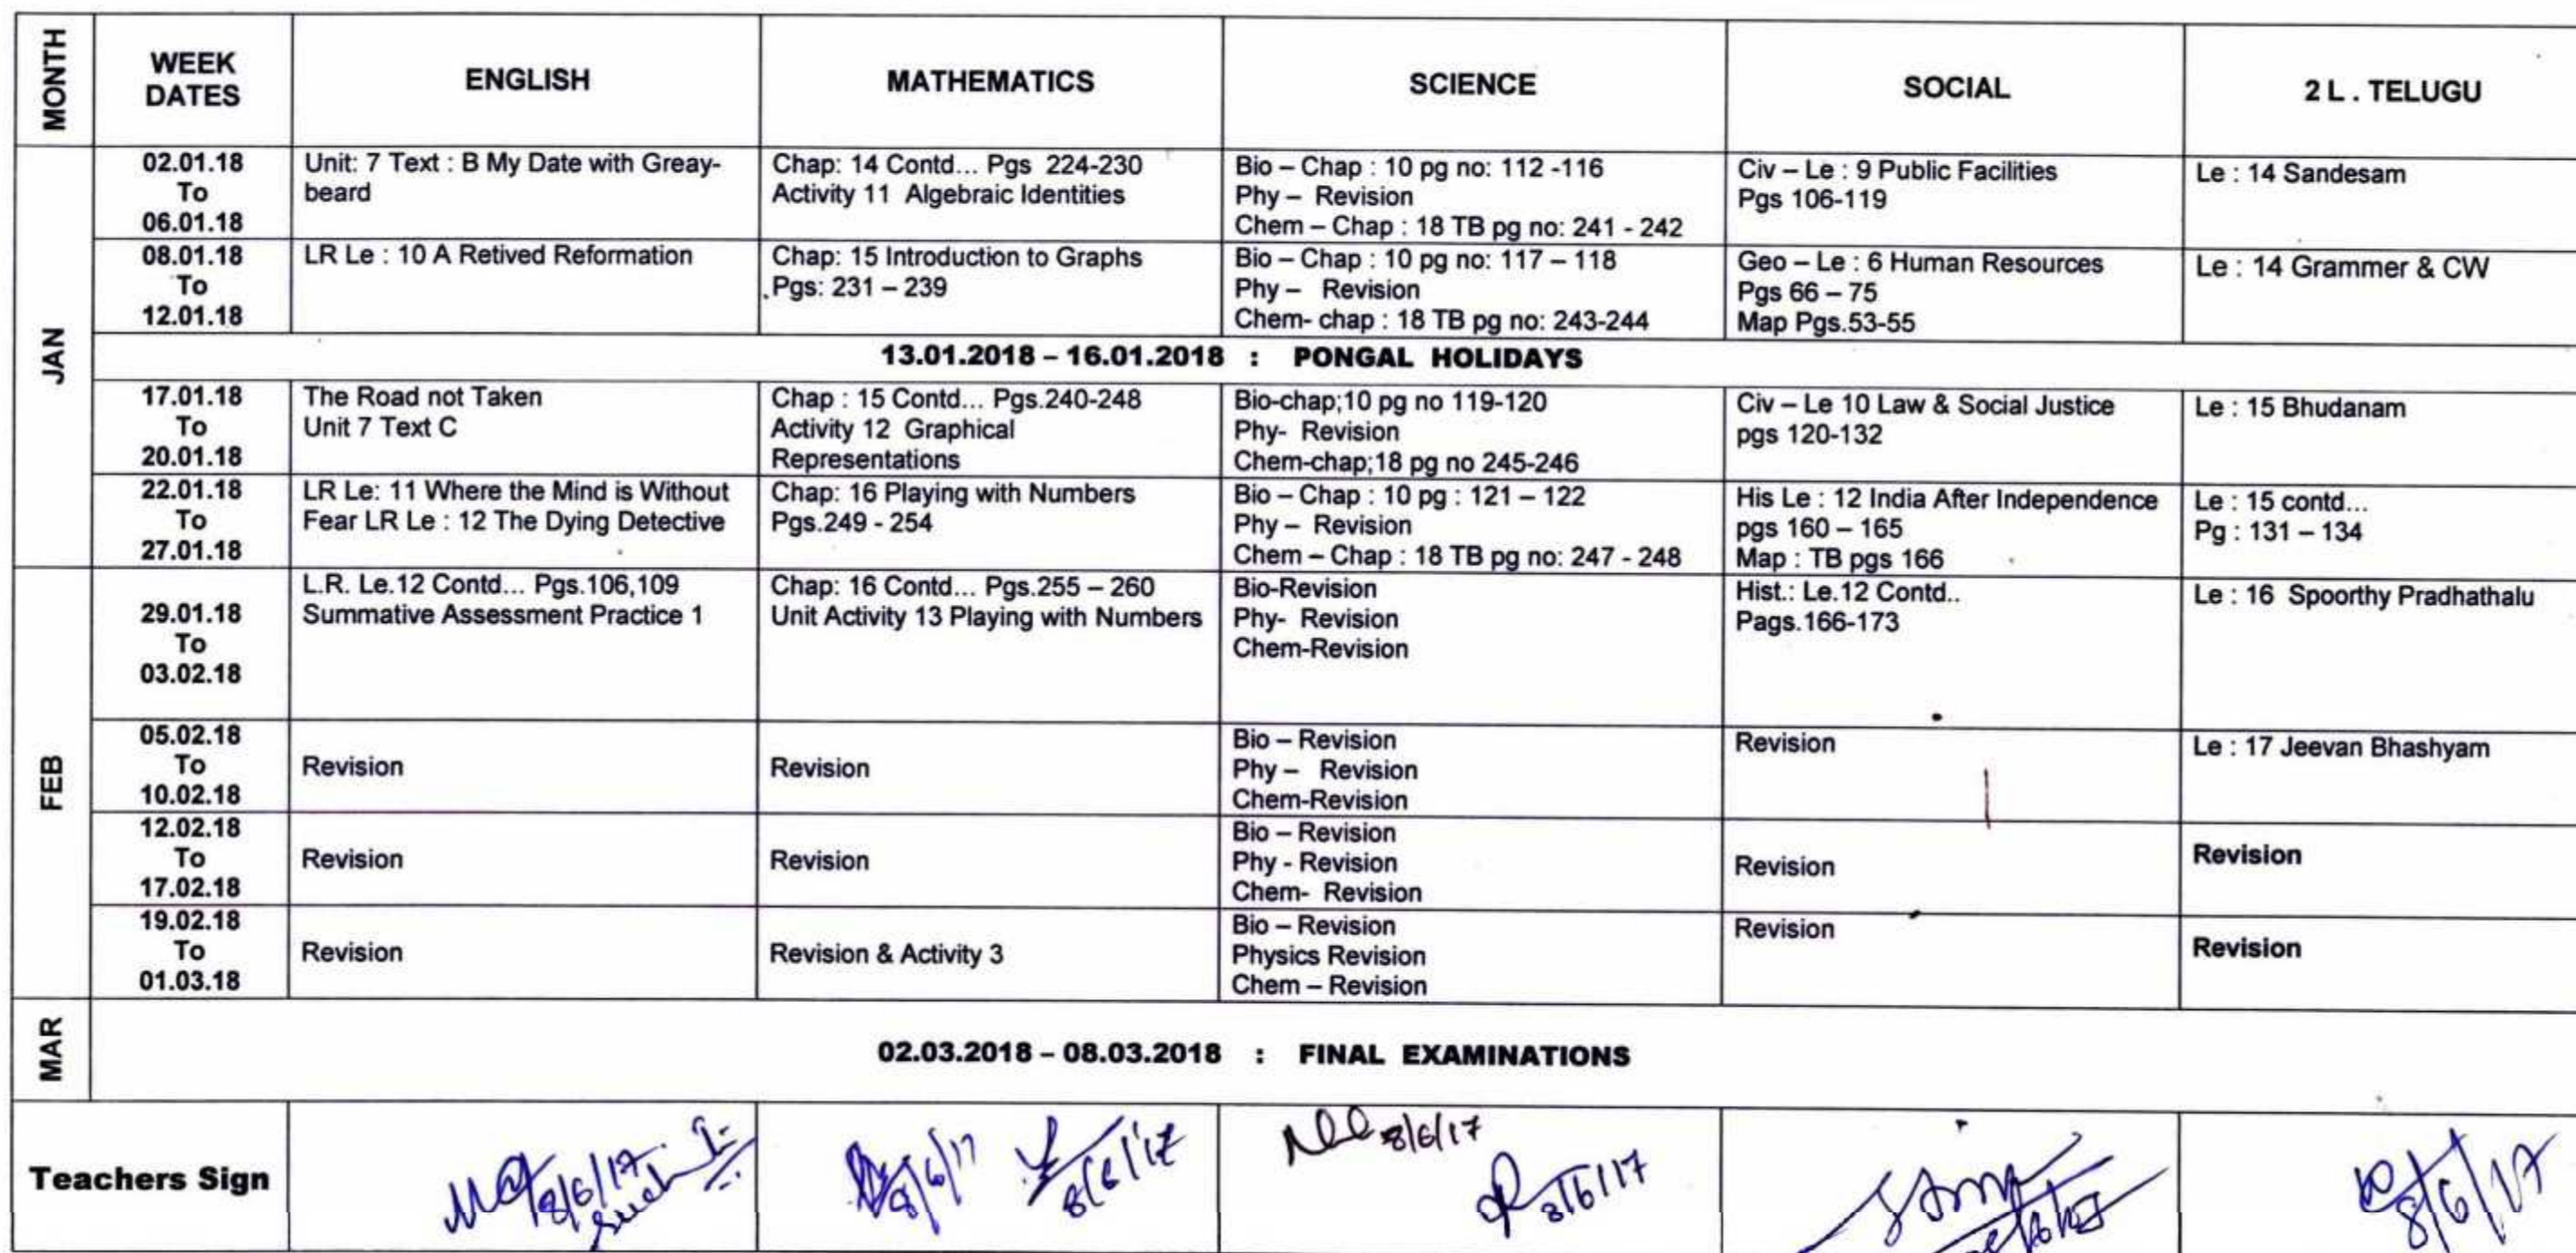 MONTH
WEEK DATES
ENGLISH
MATHEMATICS
SCIENCE
SOCIAL
2 L . TELUGU
JAN
02.01.18
To
06.01.18
Unit: 7 Text : B My Date with Greay-
beard
Chap: 14 Contd... Pgs 224-230
Activity 11 Algebraic Identities
Bio – Chap : 10 pg no: 112 -116
Phy – Revision
Chem – Chap : 18 TB pg no: 241 - 242
Civ – Le : 9 Public Facilities
Pgs 106-119
Le : 14 Sandesam
08.01.18
To
12.01.18
LR Le : 10 A Retived Reformation
Chap: 15 Introduction to Graphs
Pgs: 231 – 239
Bio – Chap : 10 pg no: 117 – 118
Phy – Revision
Chem- chap : 18 TB pg no: 243-244
Geo – Le : 6 Human Resources
Pgs 66 – 75
Map Pgs.53-55
Le : 14 Grammer & CW
13.01.2018 – 16.01.2018 : PONGAL HOLIDAYS
17.01.18
To
20.01.18
The Road not Taken
Unit 7 Text C
Chap : 15 Contd... Pgs.240-248
Activity 12 Graphical
Representations
Bio-chap;10 pg no 119-120
Phy- Revision
Chem-chap;18 pg no 245-246
Civ – Le 10 Law & Social Justice
pgs 120-132
Le : 15 Bhudanam
22.01.18
To
27.01.18
LR Le: 11 Where the Mind is Without
Fear LR Le : 12 The Dying Detective
Chap: 16 Playing with Numbers
Pgs.249 - 254
Bio – Chap : 10 pg : 121 – 122
Phy – Revision
Chem – Chap : 18 TB pg no: 247 - 248
His Le : 12 India After Independence
pgs 160 – 165
Map : TB pgs 166
Le : 15 contd...
Pg : 131 – 134
FEB
29.01.18
To
03.02.18
L.R. Le.12 Contd... Pgs.106,109
Summative Assessment Practice 1
Chap: 16 Contd... Pgs.255 – 260
Unit Activity 13 Playing with Numbers
Bio-Revision
Phy- Revision
Chem-Revision
Hist.: Le.12 Contd..
Pags.166-173
Le : 16 Spoorthy Pradhathalu
05.02.18
To
10.02.18
Revision
Revision
Bio – Revision
Phy – Revision
Chem-Revision
Revision
Le : 17 Jeevan Bhashyam
12.02.18
To
17.02.18
Revision
Revision
Bio – Revision
Phy - Revision
Chem- Revision
Revision
Revision
19.02.18
To
01.03.18
Revision
Revision & Activity 3
Bio – Revision
Physics Revision
Chem – Revision
Revision
Revision
MAR
02.03.2018 – 08.03.2018 : FINAL EXAMINATIONS
Teachers Sign
8/6/17
8/6/17
8/6/17
8/6/17
8/6/17
8/6/17